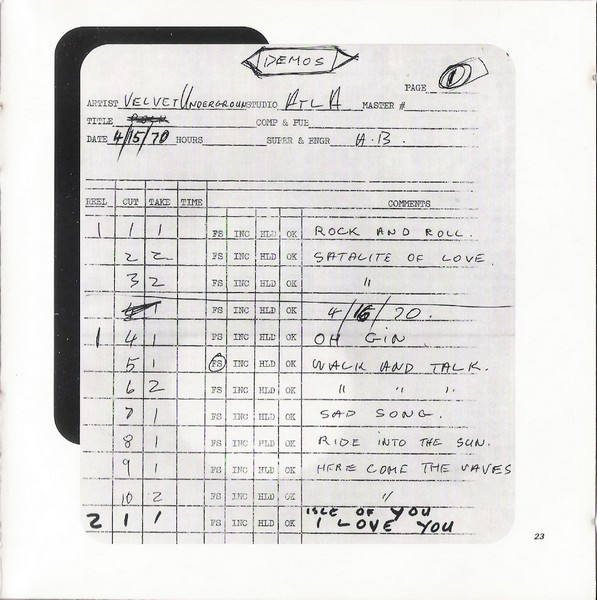 DEMOS
PAGE 1
ARTIST VELVET UNDERGROUN STUDIO ATLA MASTER #
TITLE COMP & PUB
DATE 4/15/70 HOURS SUPER & ENGR A.B.
REEL CUT TAKE TIME COMMENTS
1 1 1 FS INC HLD OK ROCK AND ROLL.
2 2 FS INC HLD OK SATALITE OF LOVE.
3 2 FS INC HLD OK "
1 4/16/70.
1 4 1 FS INC HLD OK OH GIN
5 1 FS INC HLD OK WALK AND TALK.
6 2 FS INC HLD OK " " "
7 1 FS INC HLD OK SAD SONG.
8 1 FS INC HLD OK RIDE INTO THE SUN.
9 1 FS INC HLD OK HERE COME THE WAVES
10 2 FS INC HLD OK "
ISLE OF YOU
2 1 1 FS INC HLD OK I LOVE YOU
23